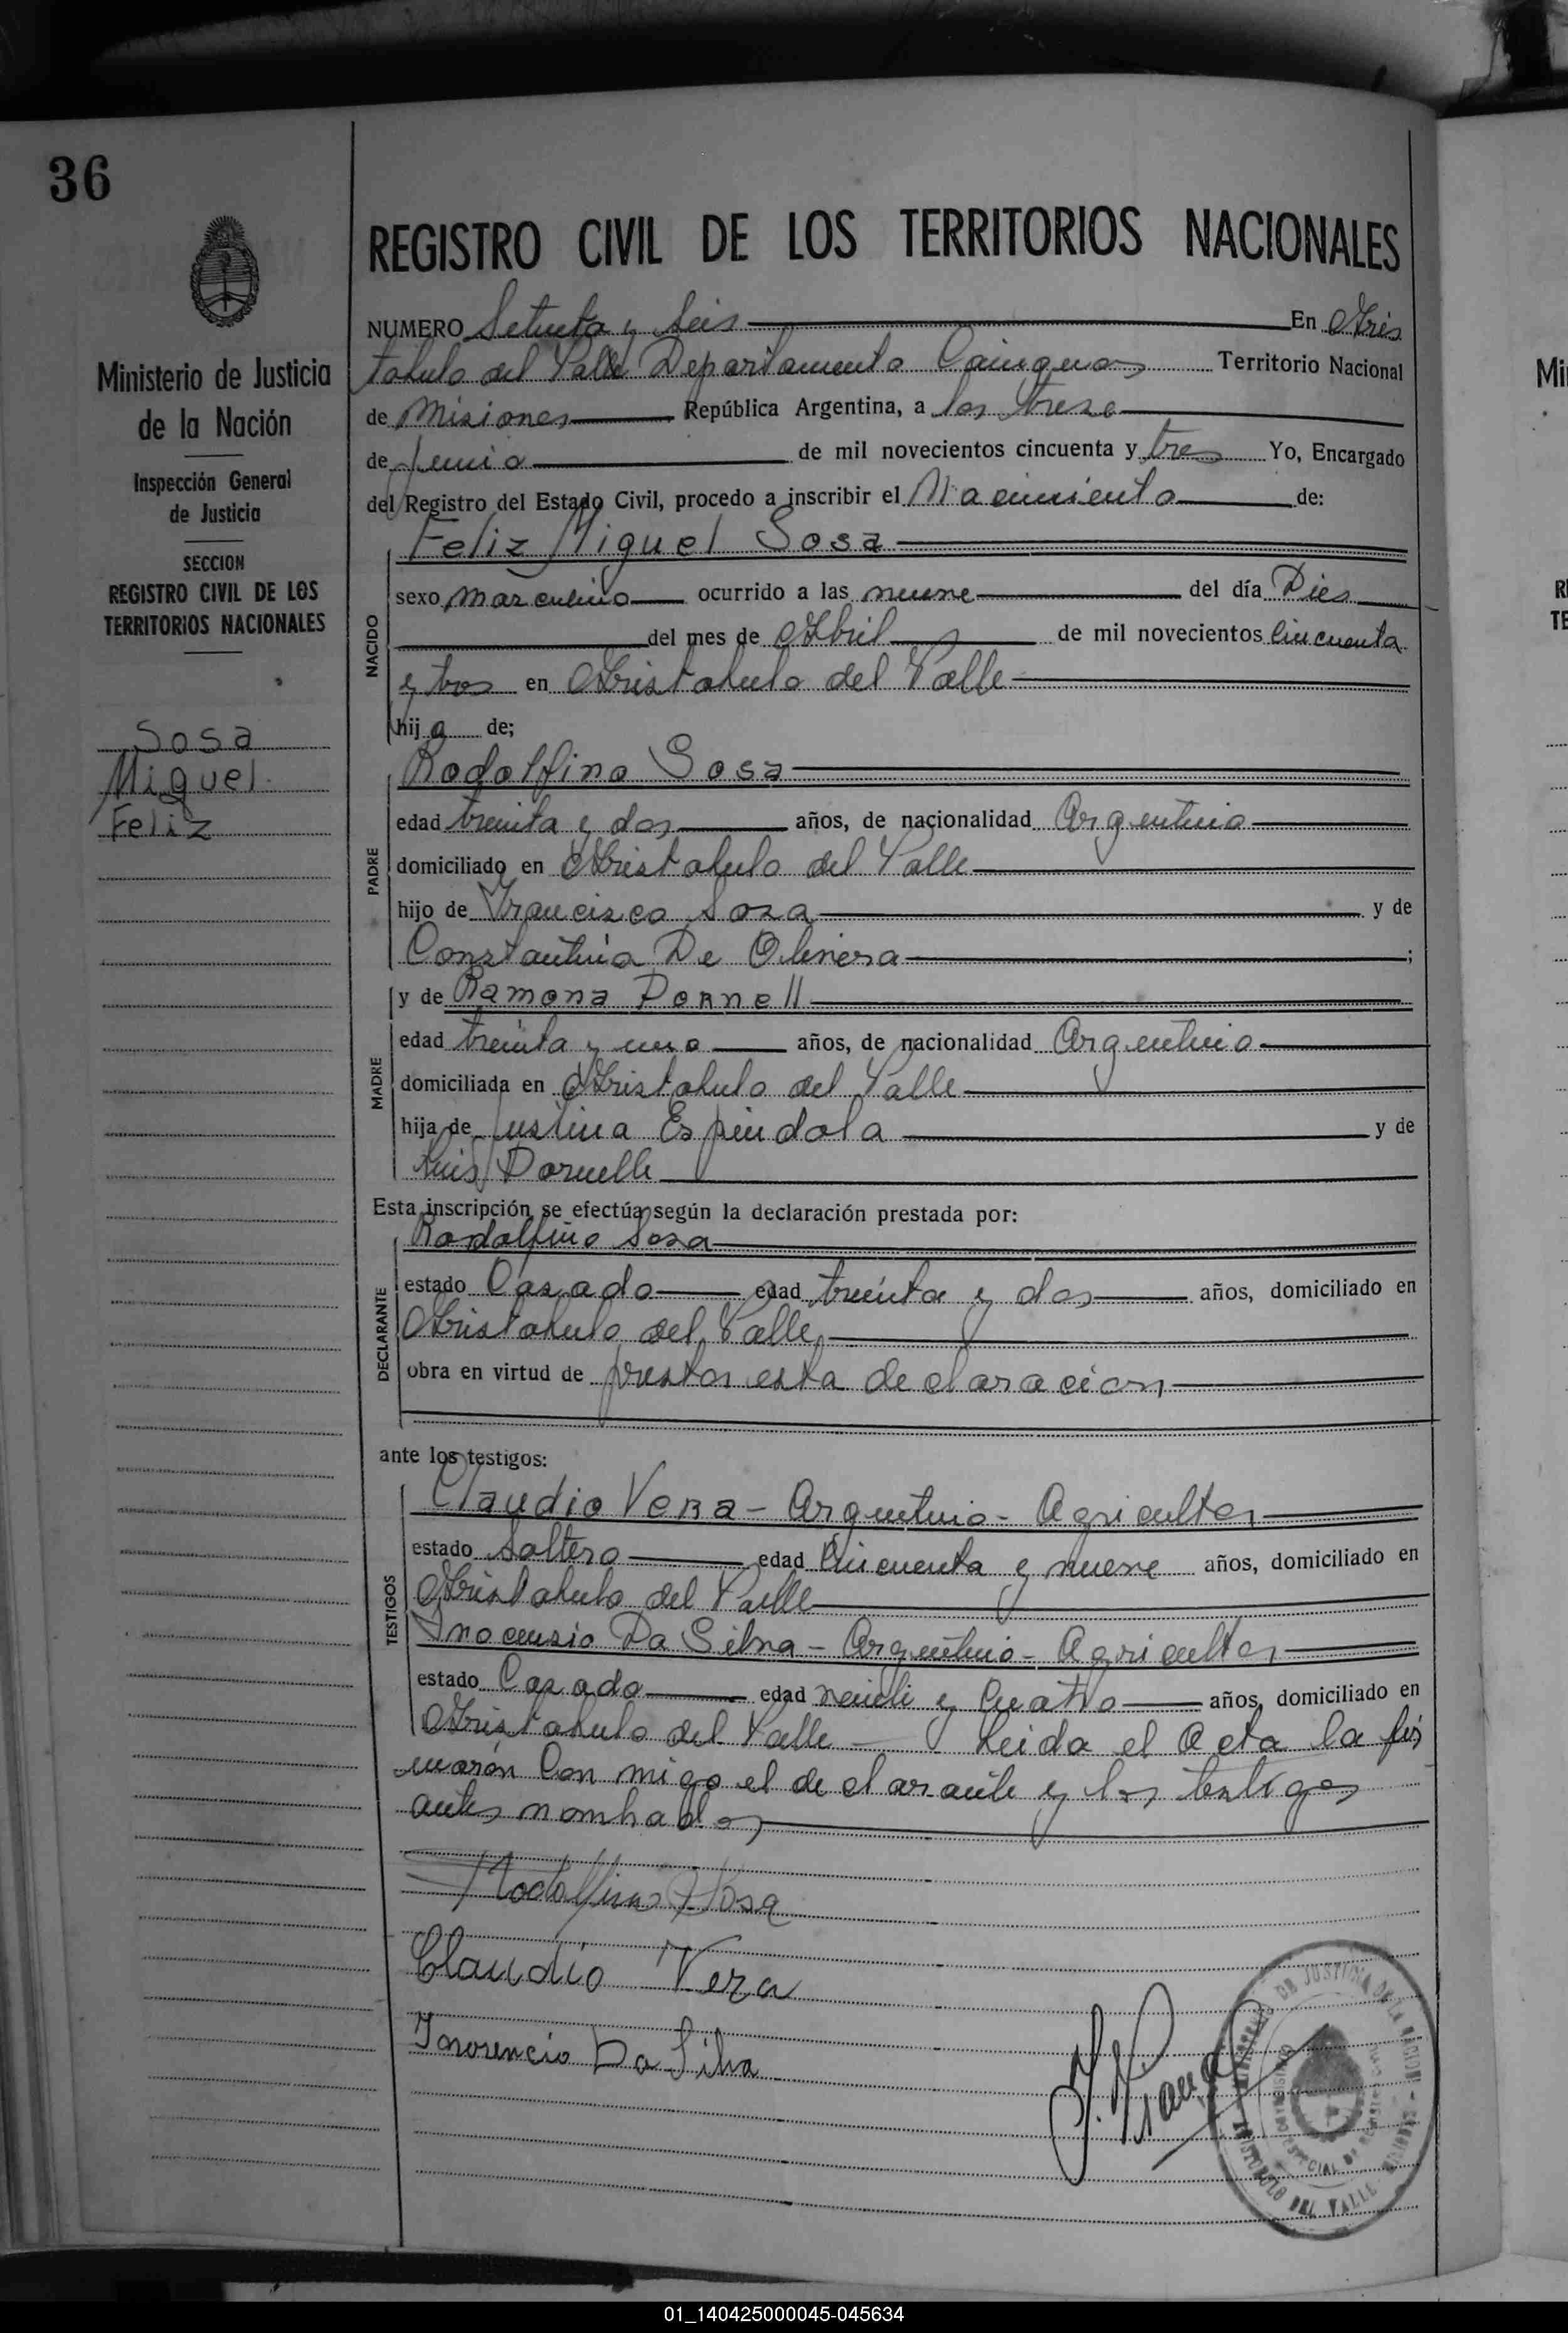 36
REGISTRO CIVIL DE LOS TERRITORIOS NACIONALES
Ministerio de Justicia
de la Nación
Inspección General
de Justicia
SECCION
REGISTRO CIVIL DE LOS
TERRITORIOS NACIONALES
Sosa
Miguel
Feliz
NUMERO Setenta y Seis En Aris
tobulo del Valle Departamento Cainguas Territorio Nacional
de Misiones República Argentina, a los trese
de junio de mil novecientos cincuenta y tres Yo, Encargado
del Registro del Estado Civil, procedo a inscribir el Nacimiento de:
Feliz Miguel Sosa
NACIDO
sexo masculino ocurrido a las nueve del día Dies
del mes de Abril de mil novecientos Cincuenta
y tres en Aristobulo del Valle
hijo de;
Rodolfino Sosa
PADRE
edad treinta y dos años, de nacionalidad Argentino
domiciliado en Aristobulo del Valle
hijo de Francisco Sosa y de
Constantina De Olivera ;
y de Ramona Dornell
MADRE
edad treinta y uno años, de nacionalidad Argentino
domiciliada en Aristobulo del Valle
hija de Justina Espindola y de
Luis Dornelle
Esta inscripción se efectúa según la declaración prestada por:
Rodolfino Sosa
DECLARANTE
estado Casado edad treinta y dos años, domiciliado en
Aristobulo del Valle
obra en virtud de prestar esta declaracion
ante los testigos:
Claudio Vera - Argentino - Agricultor
TESTIGOS
estado Soltero edad Cincuenta y nueve años, domiciliado en
Aristobulo del Valle
Inocensio Da Silva - Argentino - Agricultor
estado Casado edad y Cuatro años, domiciliado en
Aristobulo del Valle - Leida el Acta la fir
maron Con migo el declarante y los testigos
antes nombados
Rodolfino Sosa
Claudio Vera
Inosencio Da Silva
MINISTERIO DE JUSTICIA DE LA NACION
ARISTOBULO DEL VALLE
01_140425000045-045634